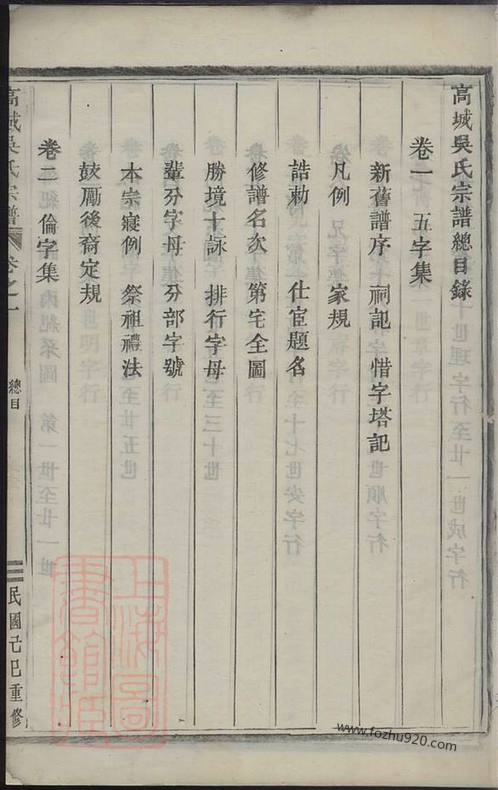 高城吳氏宗譜總目錄
卷一　五字集
新舊譜序　祠記　惜字塔記
凡例　家規
誥勅　仕宦題名
修譜名次　第宅全圖
勝境十詠　排行字母
輩分字母　分部字號
本宗寢例　祭祖禮法
鼓厲後裔定規
卷二　倫字集
高城吳氏宗譜　卷之一　總目　民國己巳重修
上海圖書館藏
www.fozhu920.com